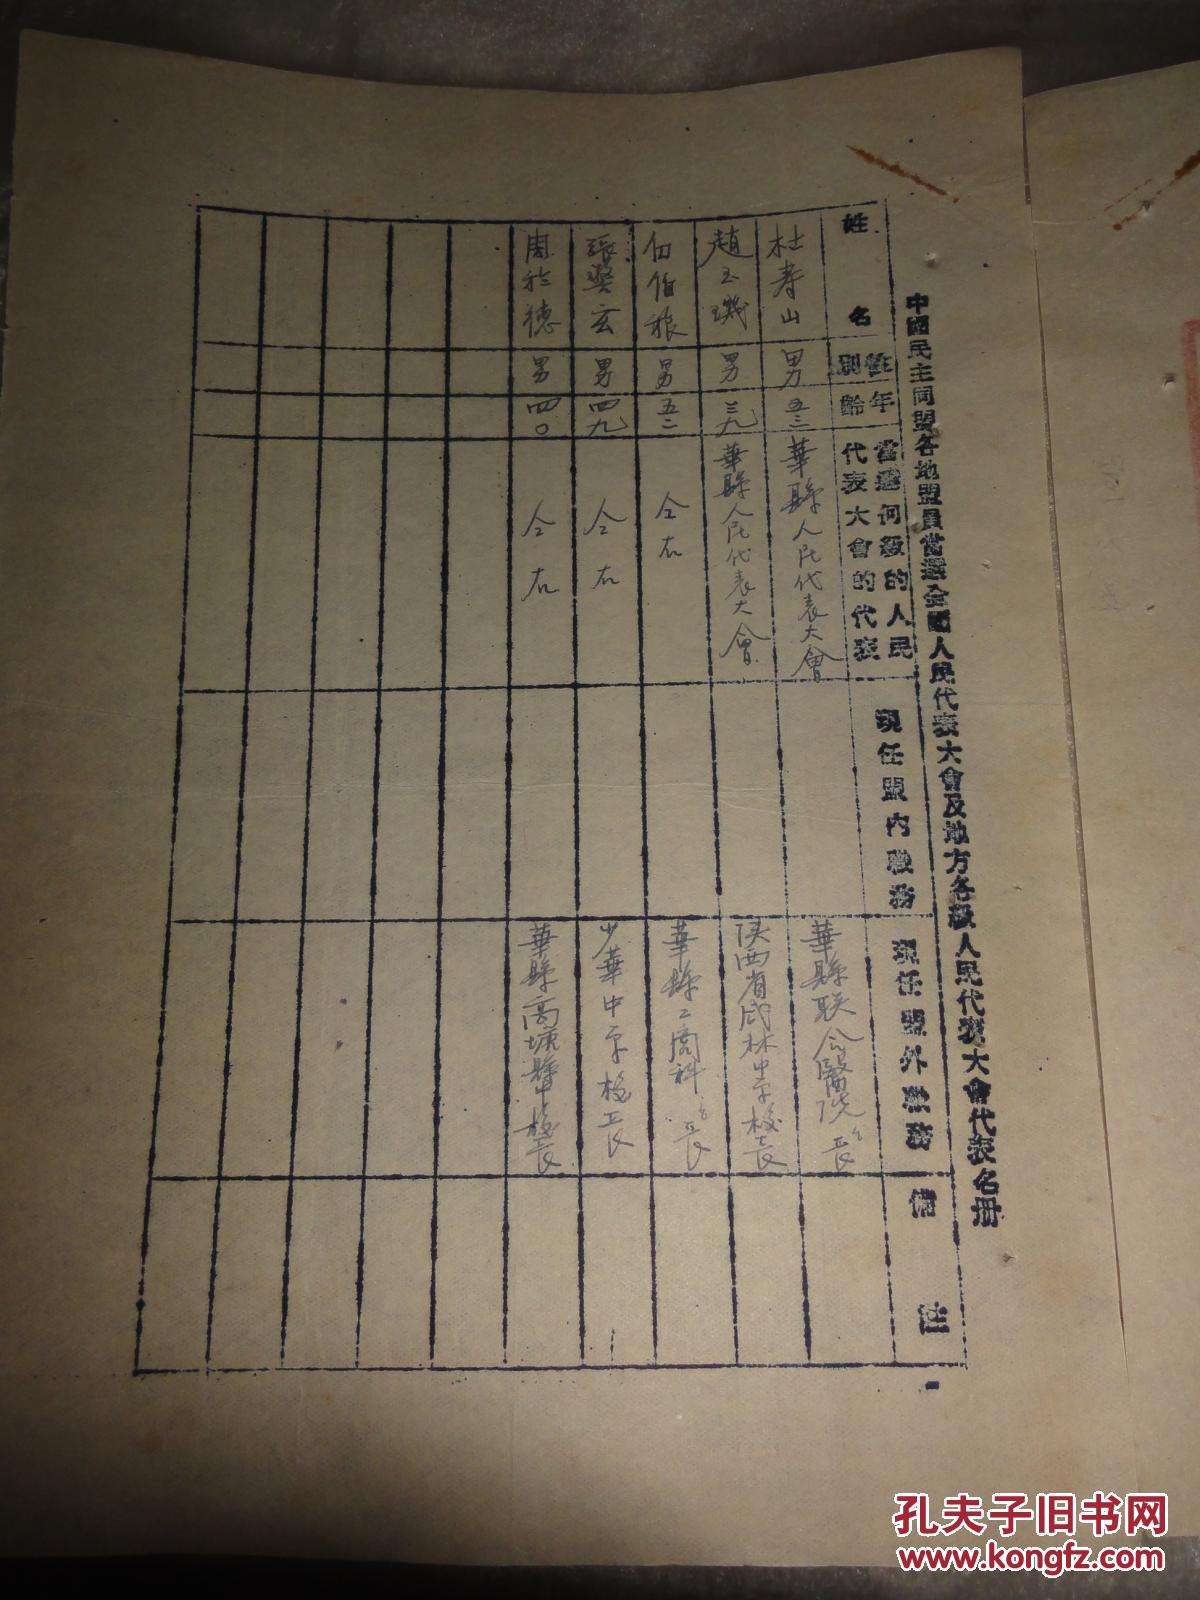 中國民主同盟各地盟員當選全國人民代表大會及地方各級人民代表大會代表名册
姓名
性別
年齡
當選何級的人民
代表大會的代表
現任盟內職務
現任盟外職務
備註
杜寿山
男
五三
華縣人民代表大會
華縣联合醫院院長
趙玉璣
男
三九
華縣人民代表大會
陕西省咸林中学校長
伯振
男
五二
仝右
華縣工商科科長
張奠玄
男
四九
仝右
少華中学校長
周於德
男
四〇
仝右
華縣高塘校長
孔夫子旧书网
www.kongfz.com